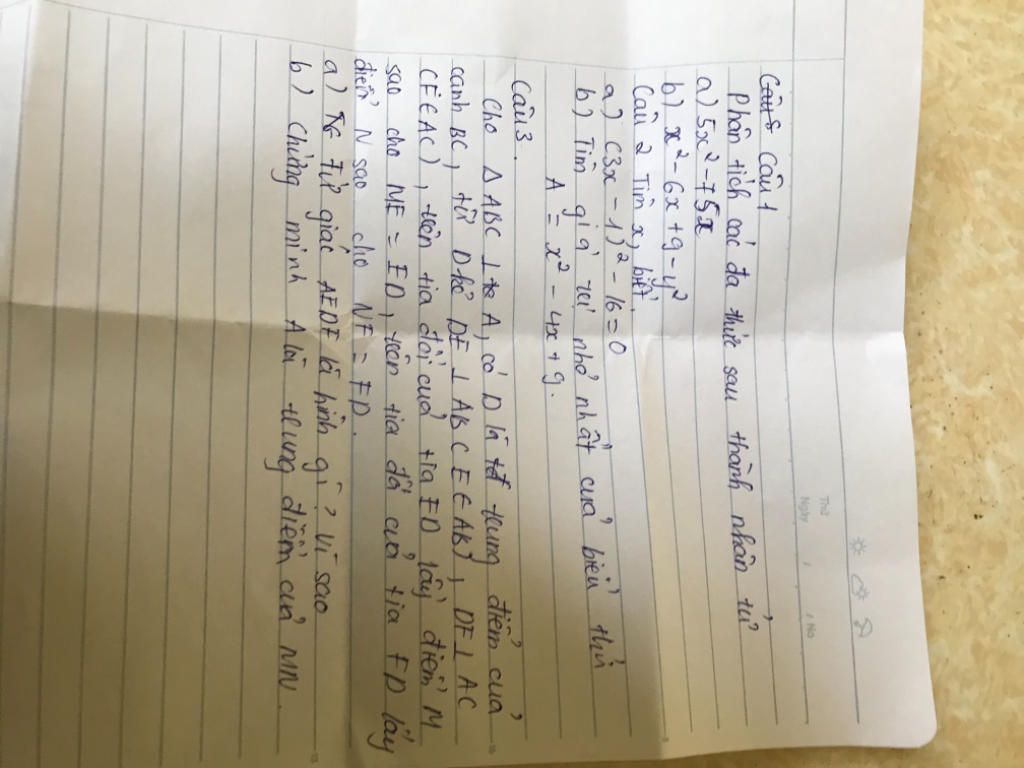 Thứ
Ngày / / No
Câu 1
Phân tích các đa thức sau thành nhân tử
a) 5x² - 75x
b) x² - 6x + 9 - y²
Câu 2 Tìm x, biết
a) (3x - 1)² - 16 = 0
b) Tìm giá trị nhỏ nhất của biểu thức
A = x² - 4x + 9.
Câu 3.
Cho Δ ABC ⊥ tại A, có D là trung điểm của
cạnh BC, từ D kẻ DE ⊥ AB (E ∈ AB), DF ⊥ AC
(F ∈ AC), trên tia đối của tia ED lấy điểm M
sao cho ME = ED, trên tia đối của tia FD lấy
điểm N sao cho NF = FD.
a) Tứ giác AEDF là hình gì? Vì sao
b) Chứng minh A là trung điểm của MN.